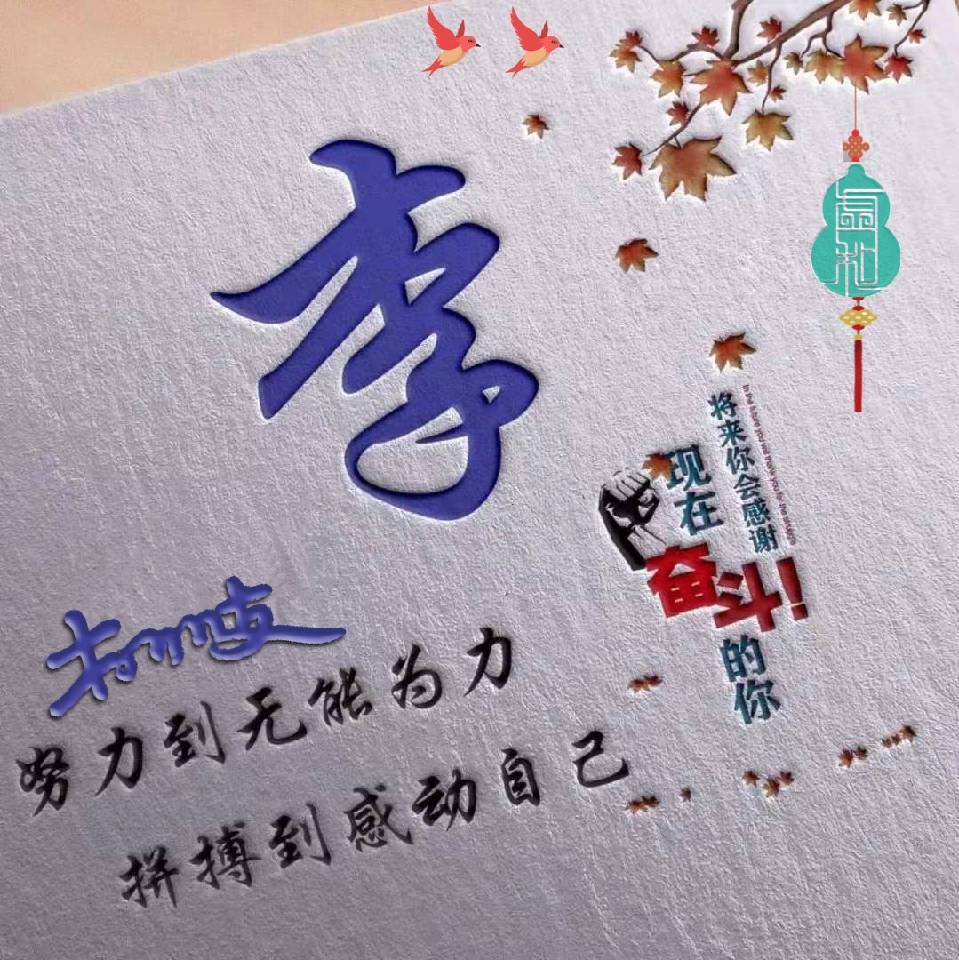 李
将来你会感谢
现在
奋斗!
的你
努力到无能为力
拼搏到感动自己